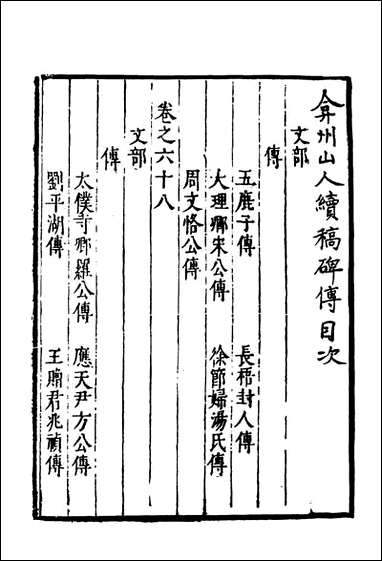 弇州山人續稿碑傳目次
文部
傳
五鹿子傳 長梧封人傳
大理卿宋公傳 徐節婦湯氏傳
周文恪公傳
卷之六十八
文部
傳
太僕寺卿羅公傳 應天尹方公傳
劉平湖傳 王贈君兆禎傳